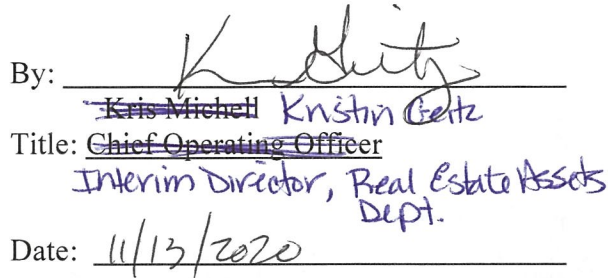 By: K Geitz
Kris Michell Kristin Geitz
Title: Chief Operating Officer
Interim Director, Real Estate Assets
Dept.
Date: 11/13/2020